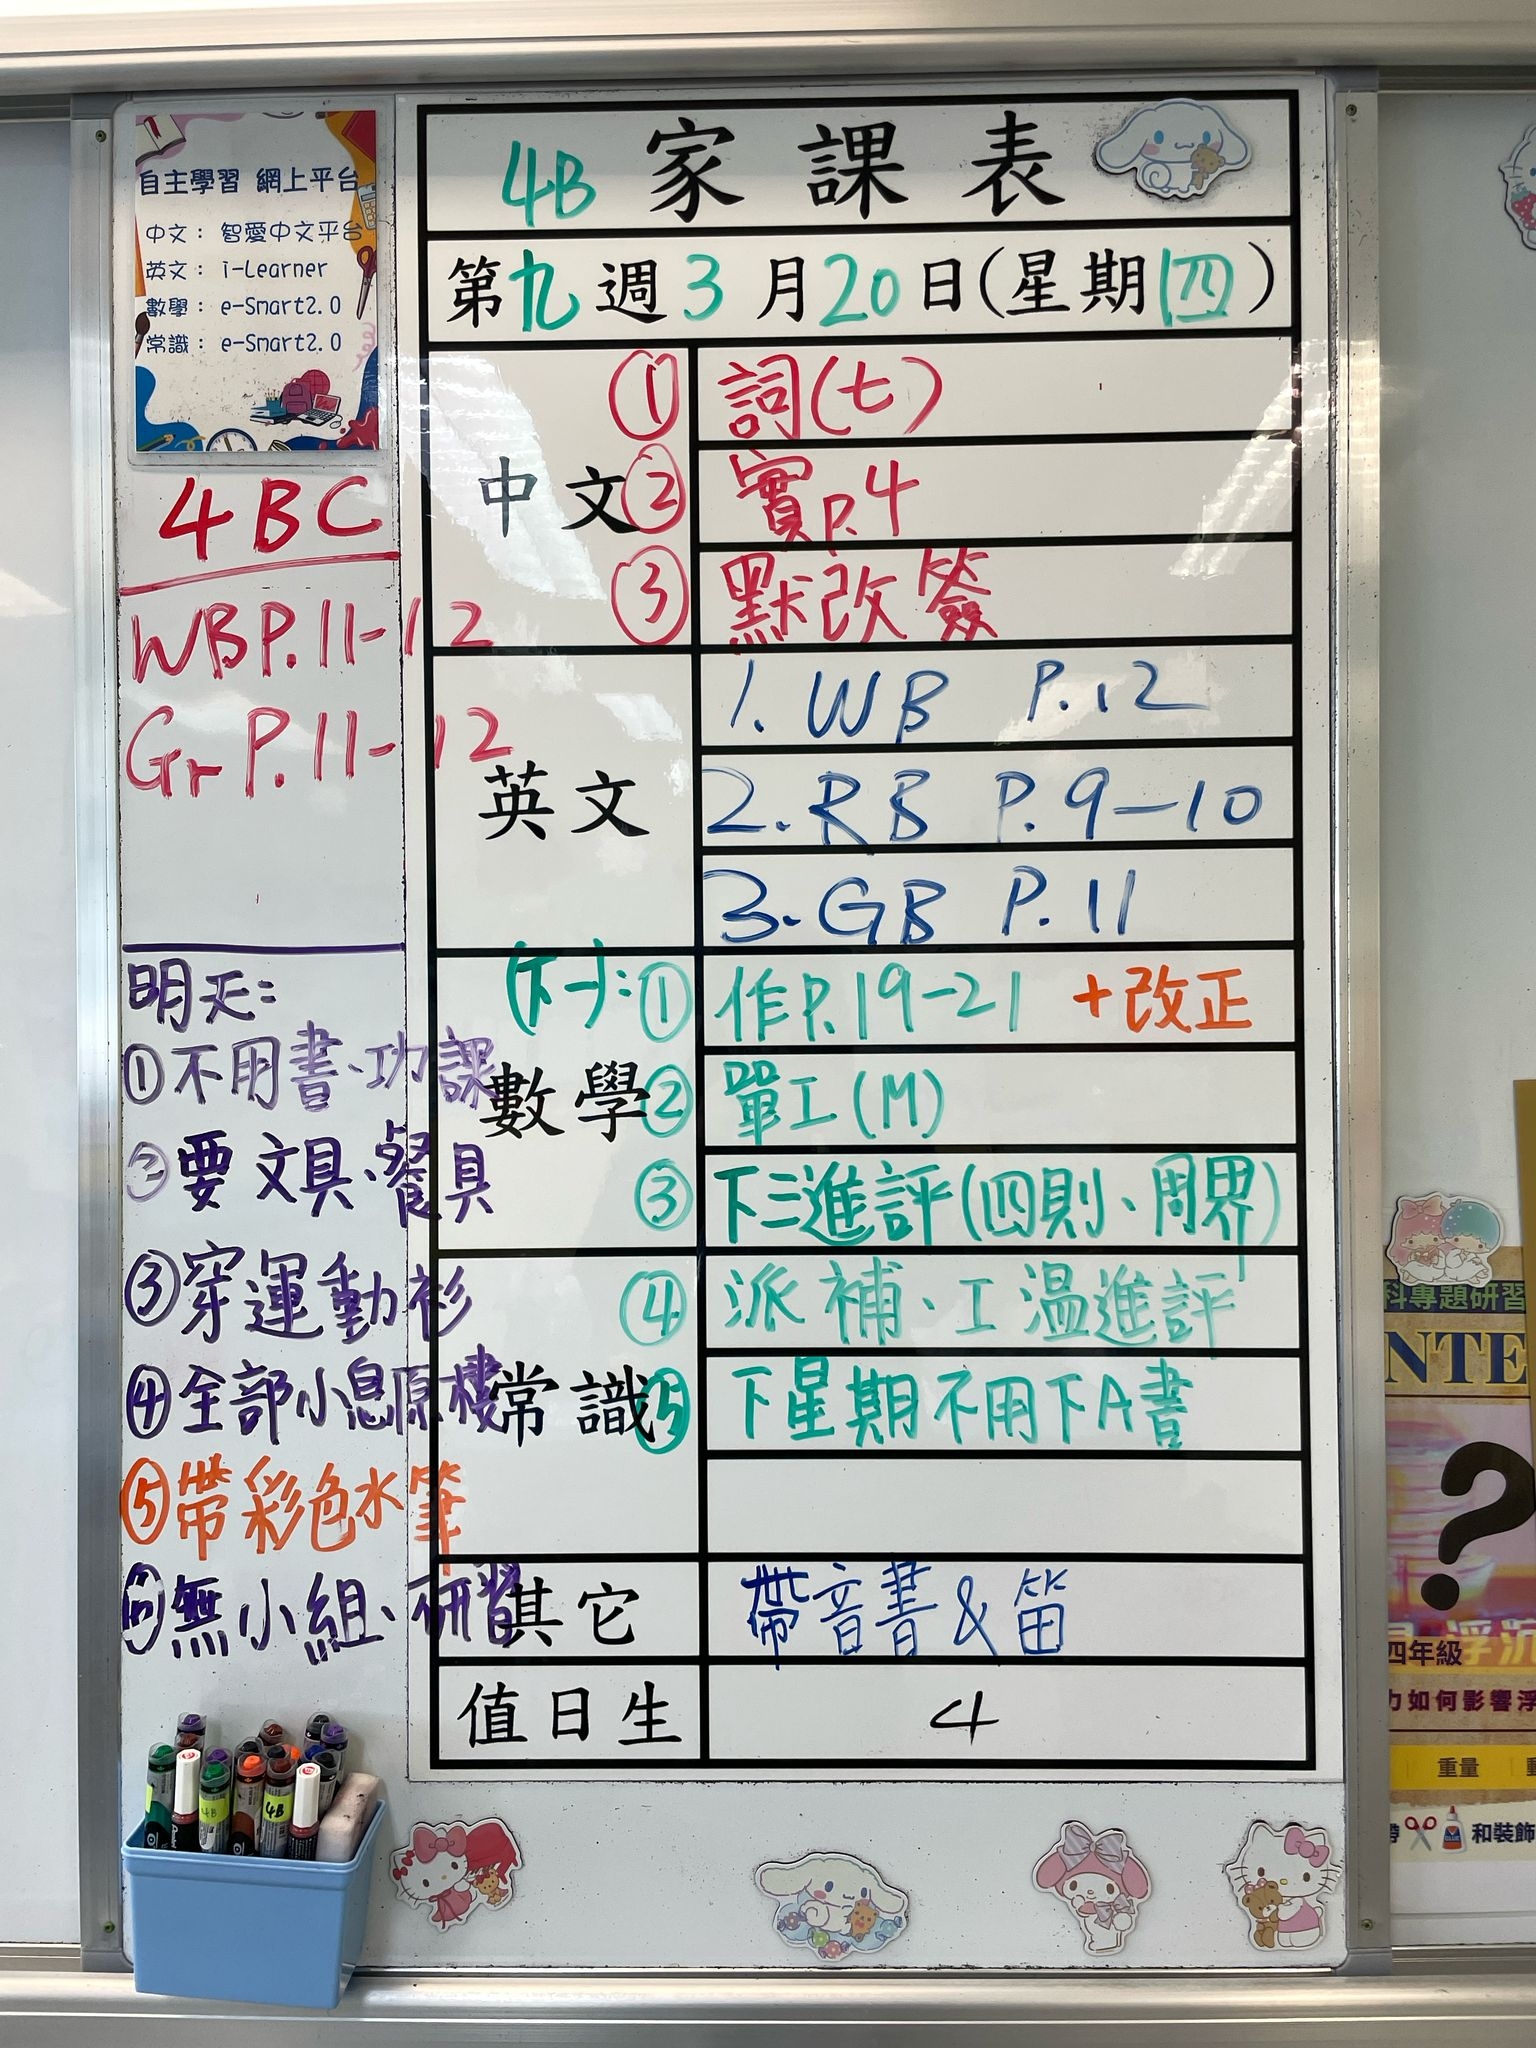 自主學習 網上平台
中文： 智愛中文平台
英文： i-Learner
數學： e-Smart2.0
常識： e-Smart2.0
4BC
WB P.11-12
Gr P.11-12
明天:
①不用書、功課
②要文具、餐具
③穿運動衫
④全部小息原樓
⑤帶彩色水筆
無小組、研習
4B 家課表
第九週3月20日(星期四)
中文
① 詞(七)
② 實P.4
③ 默改簽
英文
1. WB P.12
2. RB P.9-10
3. GB P.11
數學
(下一): ① 作P.19-21 +改正
② 單工(M)
③ 下三進評(四則、周界)
常識
④ 派補、工溫進評
⑤ 下星期不用下A書
其它
帶音書&笛
值日生
4
科專題研習
NTE
?
浮沉
四年級
力如何影響浮
重量
和裝飾